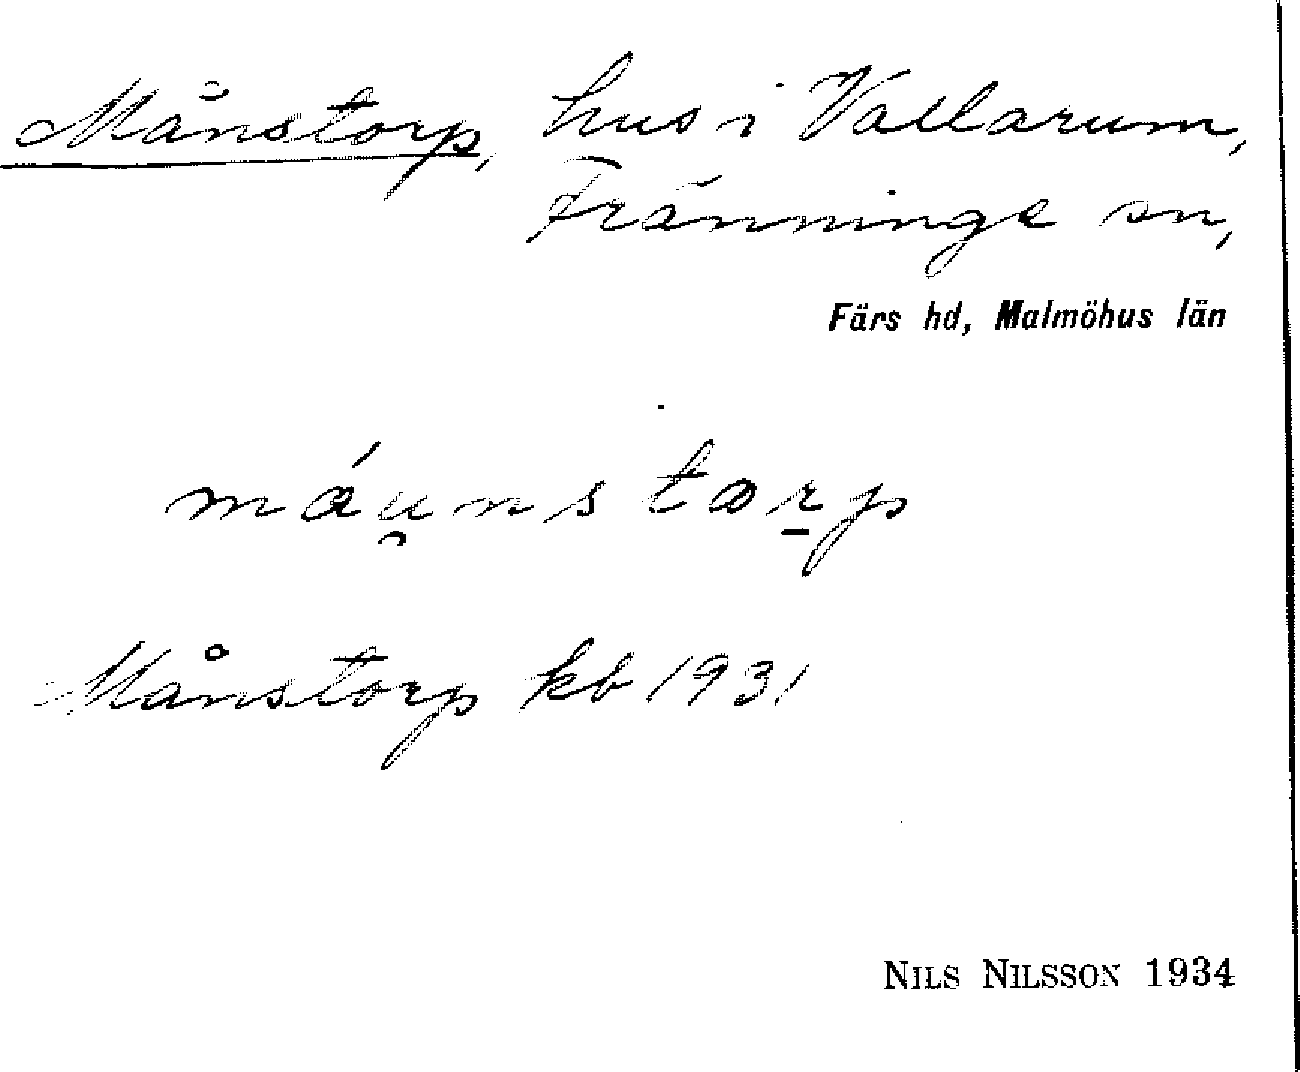 Månstorp, hus i Vallarum,
Fränninge sn,
Färs hd, Malmöhus län
máu̯nstɒr̠p
Månstorp kb 1931
NILS NILSSON 1934